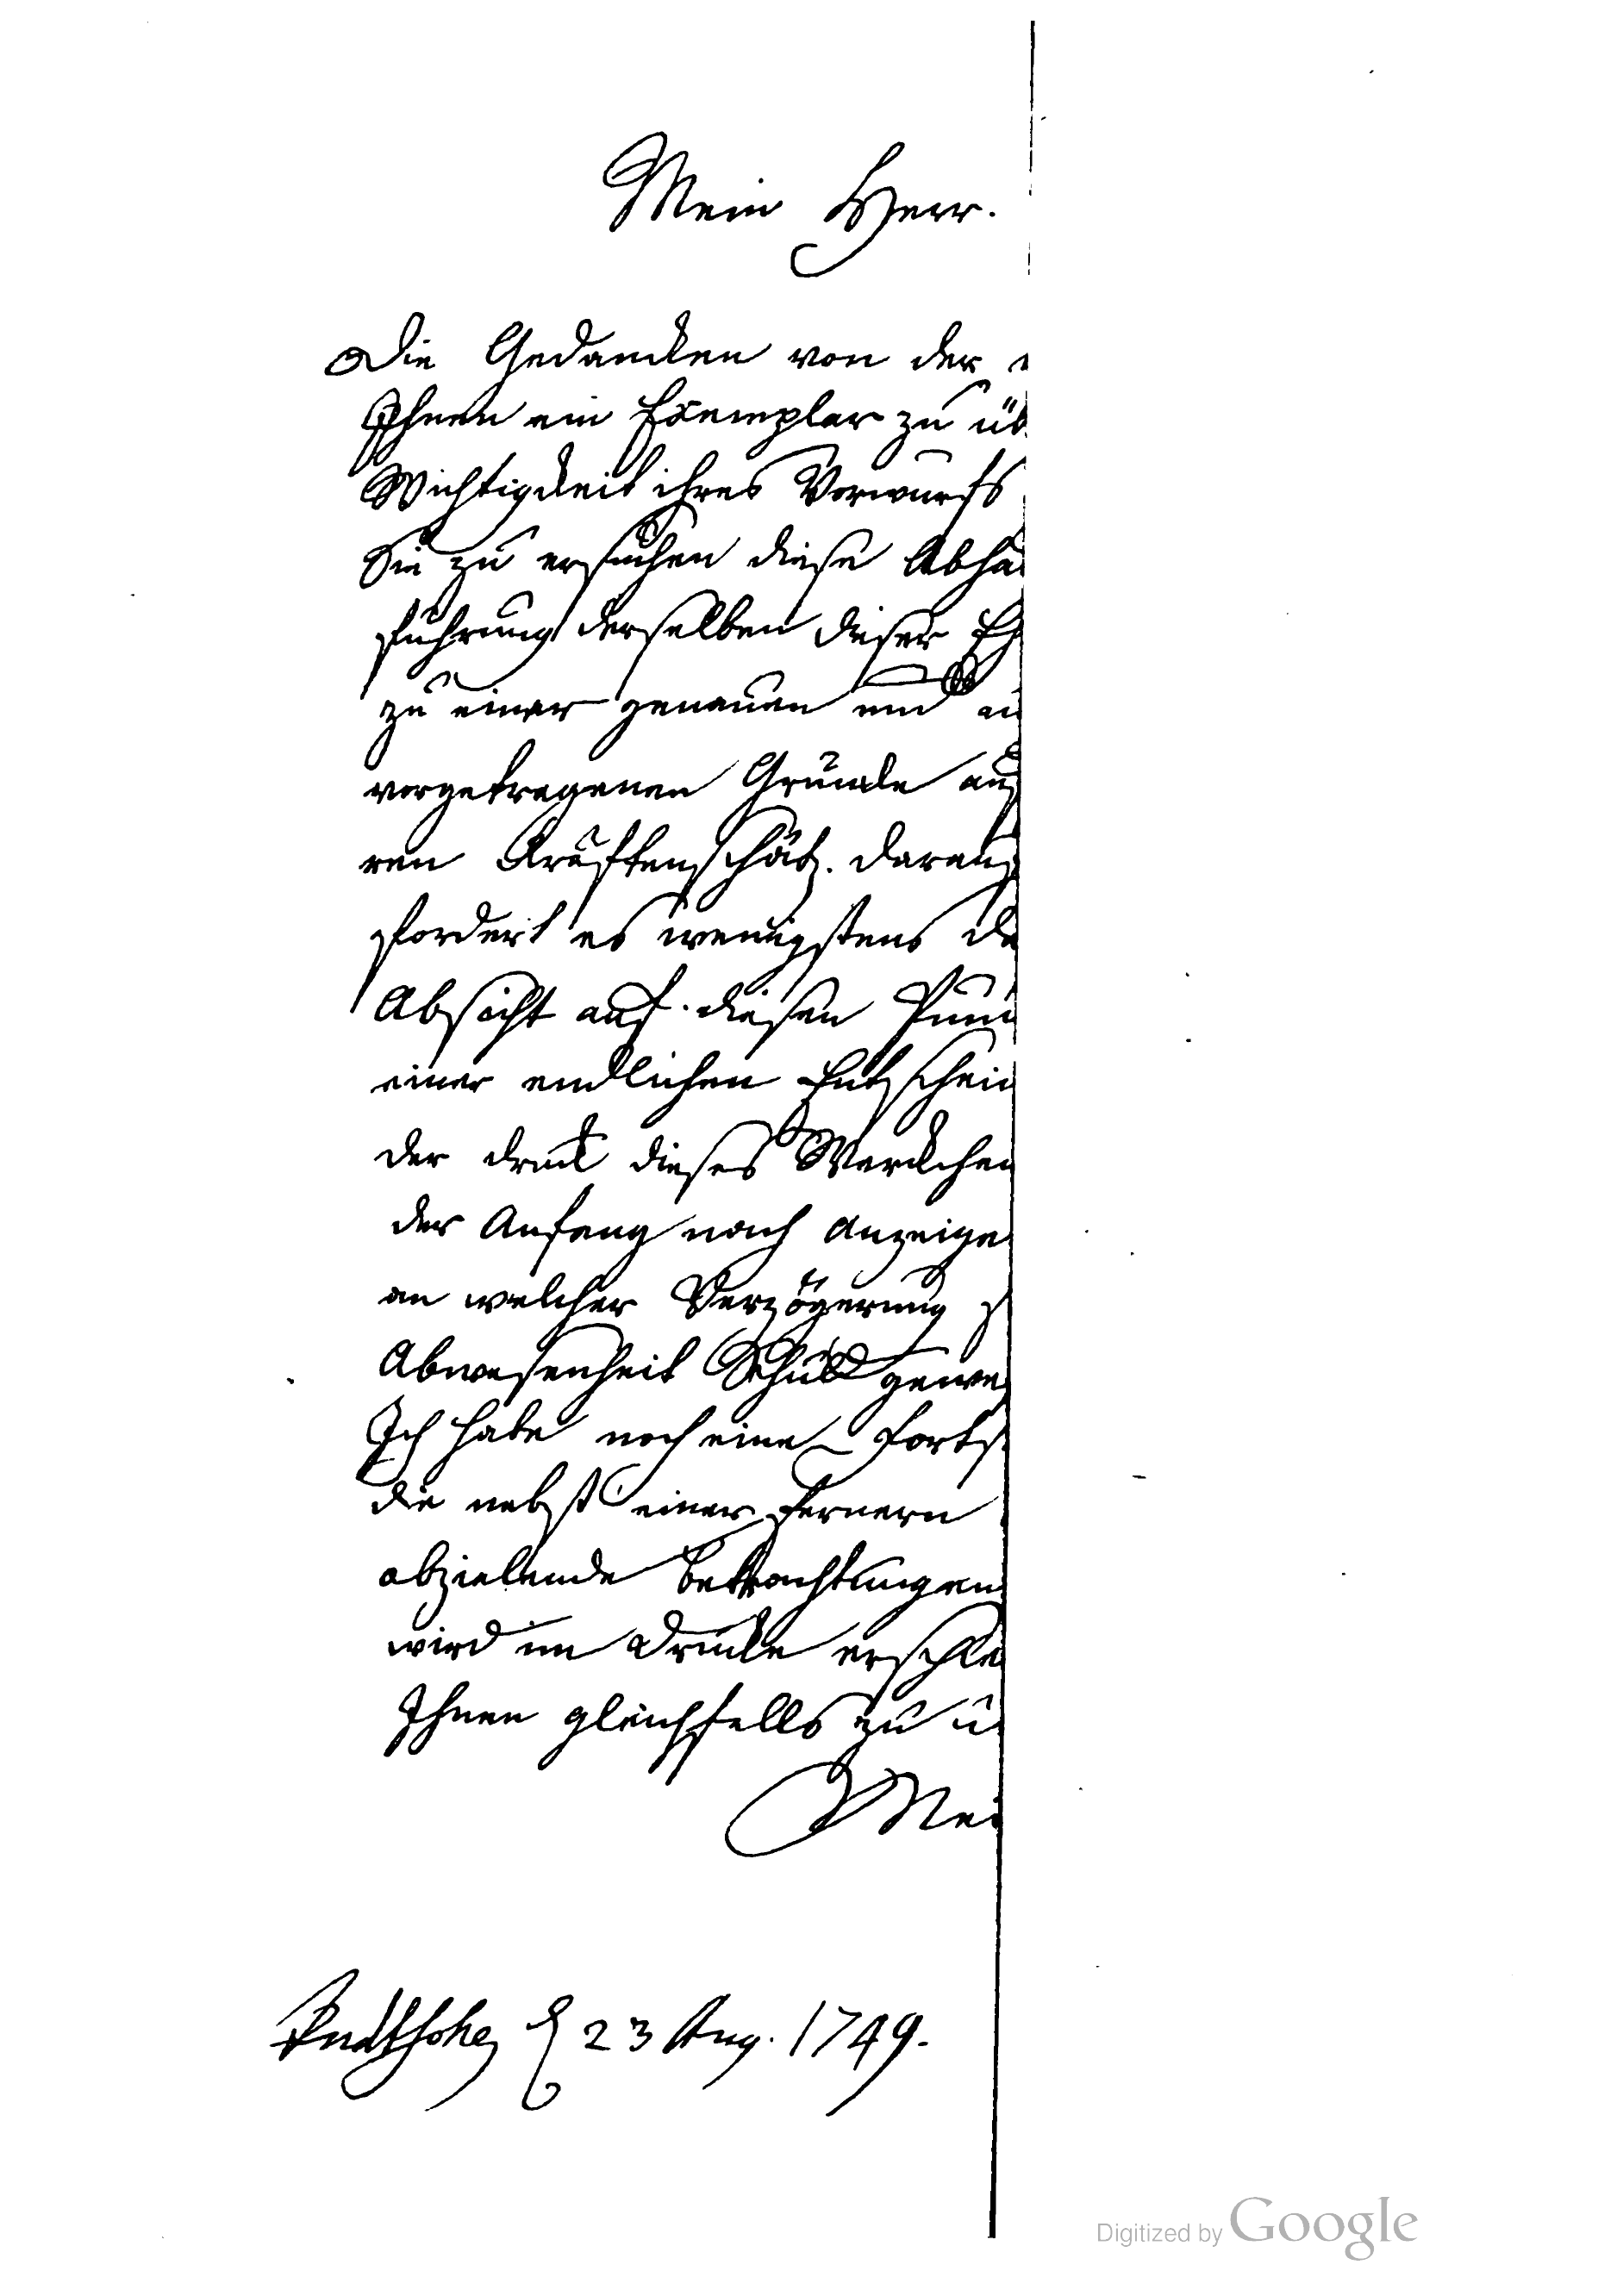 Mein Herr.
Die Gedancken von der
Ihnen ein Exemplar zu üb
Wichtigkeit ihres Vorwurfs
Sie zu ersuchen diese Abha
führung derselben dieser Eh
zu einer genauen und
vorgetragenen Gründe aus
ren Kräftenschätz. daraus
fordert es wenigstens da
Absicht auf diesen Punc
einer endlichen Entscheid
der druck dieses Werckchen
der Anfang nach Anzeige
an welcher Verzögerung
Abwesenheit Schuld gewes
Ich habe noch eine Forts
die nebst einer fernern
abzielende Betrachtungen
wird im Drucke
Ihnen gleichfalls zu ü
Mei
23 Aug. 1749.
Digitized by Google